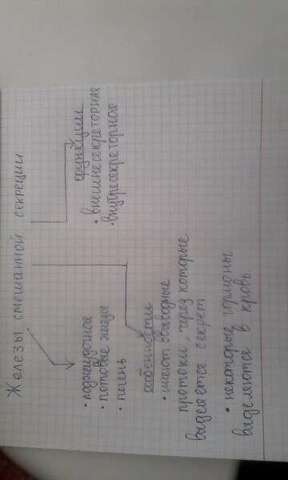 Железы смешанной секреции
• поджелудочное
• потовые железы
• печень
особенности
• имеют выводные
протоки, через которые
выделяется секрет
• некоторые гормоны
выделяются в кровь
функции
• внешнесекреторная
• внутресекреторное